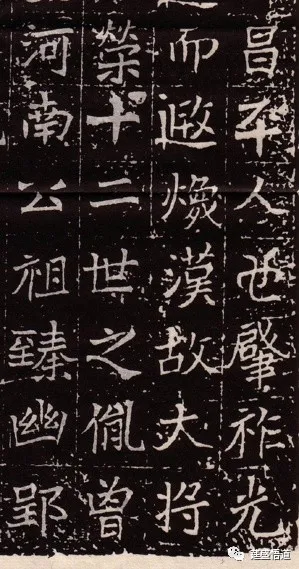 昌平人也肇祚光
而遐焕漢故夫将
榮十二世之胤曾
河南公祖臻幽郢
悟道